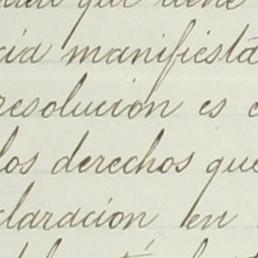 que tiene
cia manifiesta
resolución es
los derechos que
claración en